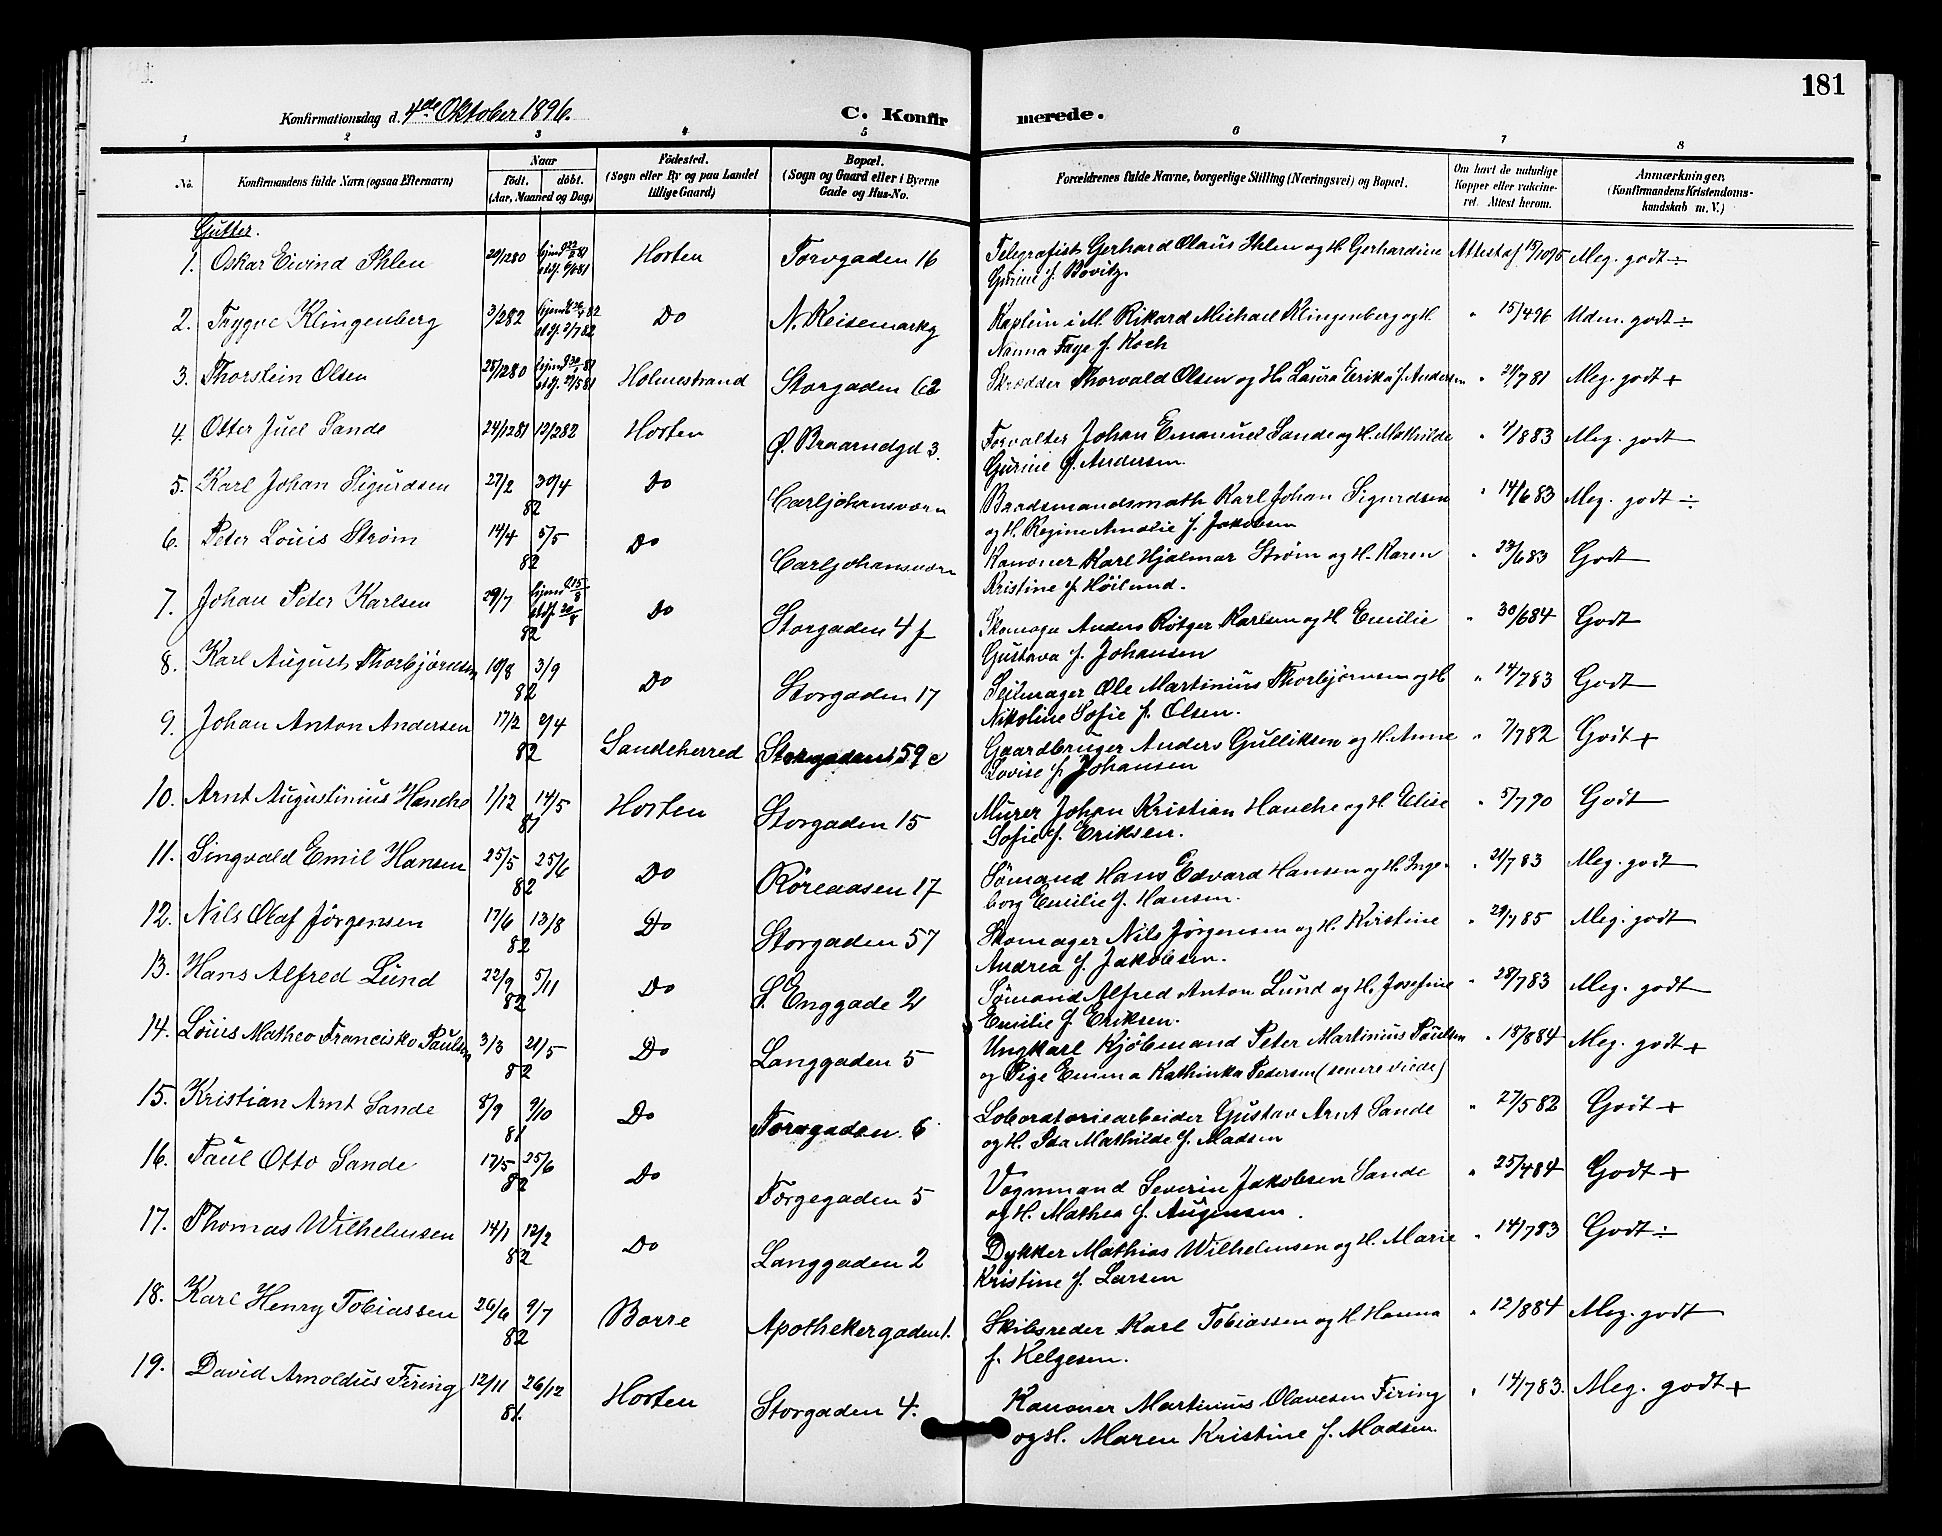 181
Konfirmationsdag d. 4de Oktober 1896.
C. Konfirmerede.
1 2 3 4 5 6 7 8
No.
Konfirmandens fulde Navn (ogsaa Efternavn)
Naar
födt. döbt.
(Aar, Maaned og Dag)
Födested.
(Sogn eller By og paa Landet
tillige Gaard)
Bopæl.
(Sogn og Gaard eller i Byerne
Gade og Hus-No.
Forældrenes fulde Navne, borgerlige Stilling (Næringsvei) og Bopæl.
Om havt de naturlige
Kopper eller vakcine-
ret. Attest herom.
Anmærkninger.
(Konfirmandens Kristendoms-
kundskab m. V.)
Gutter.
1. Oskar Eivind Ihlen 29/1280 Hjemd 81 stdf. 6/681 Horten Torvgaden 16 Telegrafist Gerhard Olaus Ihlen og H. Gerhardine Attest af 15/1095 Meg. godt ÷
Gurine f. Bovitz.
2. Trygve Klingenberg 3/282 Hjemd 82 stdf. 2/782 Do N. Keisemarkg Kaptein i M. Rikard Michael Klingenberg og H. " 15/496 Udm. godt ÷
Nanna Faye f. Koch
3. Thorstein Olsen 25/1280 Hjemd 81 stdf. 27/581 Holmestrand Storgaden 62 Skrædder Thorvald Olsen og H. Laura Erika f. Andersen " 21/781 Meg. godt +
4. Otter Juel Sande 24/1281 12/282 Horten Ø. Braarudgd 3. Forvalter Johan Emanuel Sande og H. Mathilde " 1/883 Meg. godt
Gurine f. Andersen.
5. Karl Johan Sigurdsen 27/2 30/4 82 Do Carljohansværn Baadsmandsmath Karl Johan Sigurdsen " 14/683 Meg. godt ÷
og H. Regine Amalie f. Jakobsen
6. Peter Louis Strøm 14/4 5/5 82 Do Carljohansværn Kanoner Karl Hjalmar Strøm og H. Karen " 23/683 Godt
Kristine f. Höilund.
7. Johan Peter Karlsen 29/7 Hjemd 15/8 stdf. 20/8 82 Do Storgaden 4 f Skomager Anders Rötger Karlsen og H. Emilie " 30/684 Godt
Gustava f. Johansen
8. Karl August Thorbjörnsen 10/8 3/9 82 Do Storgaden 17 Seilmager Ole Martinius Thorbjörnsen og H. " 14/783 Godt
Nikoline Sofie f. Olsen.
9. Johan Anton Andersen 17/2 2/4 82 Sandeherred Storgaden 59 c Gaardbruger Anders Gulliksen og H. Anne " 7/782 Godt +
Lovise f. Johansen
10. Arnt Augustinius Hanche 1/12 14/5 81 Horten Storgaden 15 Murer Johan Kristian Hanche og H. Elise " 5/790 Godt
Sofie f. Eriksen.
11. Singvald Emil Hansen 25/5 25/6 82 Do Röreaasen 17 Sömand Hans Edvard Hansen og H. Inge- " 21/783 Meg. godt
borg Emilie f. Hansen.
12. Nils Olaf Jörgensen 17/6 13/8 82 Do Storgaden 57 Skomager Nils Jørgensen og H. Kirstine " 29/785 Meg. godt
Andrea f. Jakobsen.
13. Hans Alfred Lund 22/9 5/11 82 Do S. Enggade 2 Sömand Alfred Anton Lund og H. Josefine " 28/783 Meg. godt
Emilie f. Eriksen.
14. Louis Matheo Francisko Paulsen 3/3 21/5 82 Do Langgaden 5 Ungkarl Kjöbmand Peter Martinius Paulsen " 18/884 Meg. godt +
og Pige Emma Kathinka Pedersen (senere viede)
15. Kristian Arnt Sande 8/9 9/10 81 Do Torvgaden 6 Laboratoriearbeider Gustav Arnt Sande " 27/582 Godt +
og H. Ida Mathilde f. Madsen
16. Paul Otto Sande 17/5 25/6 82 Do Torgegaden 5 Vognmand Severin Jakobsen Sande " 25/484 Godt +
og H. Mathea f. Augensen.
17. Thomas Wilhelmsen 14/1 12/2 82 Do Langgaden 2 Dykker Mathias Wilhelmsen og H. Marie " 14/783 Godt ÷
Kristine f. Larsen
18. Karl Henry Tobiassen 26/6 9/7 82 Borre Apothekergaden 1. Skibsreder Karl Tobiassen og H. Hanna " 12/884 Meg. godt
f. Helgesen.
19. David Arnoldus Firing 12/11 26/12 81. Horten Storgaden 4. Kanoner Martinius Olavesen Firing " 14/783. Meg. godt +
og H. Maren Kristine f. Madsen.